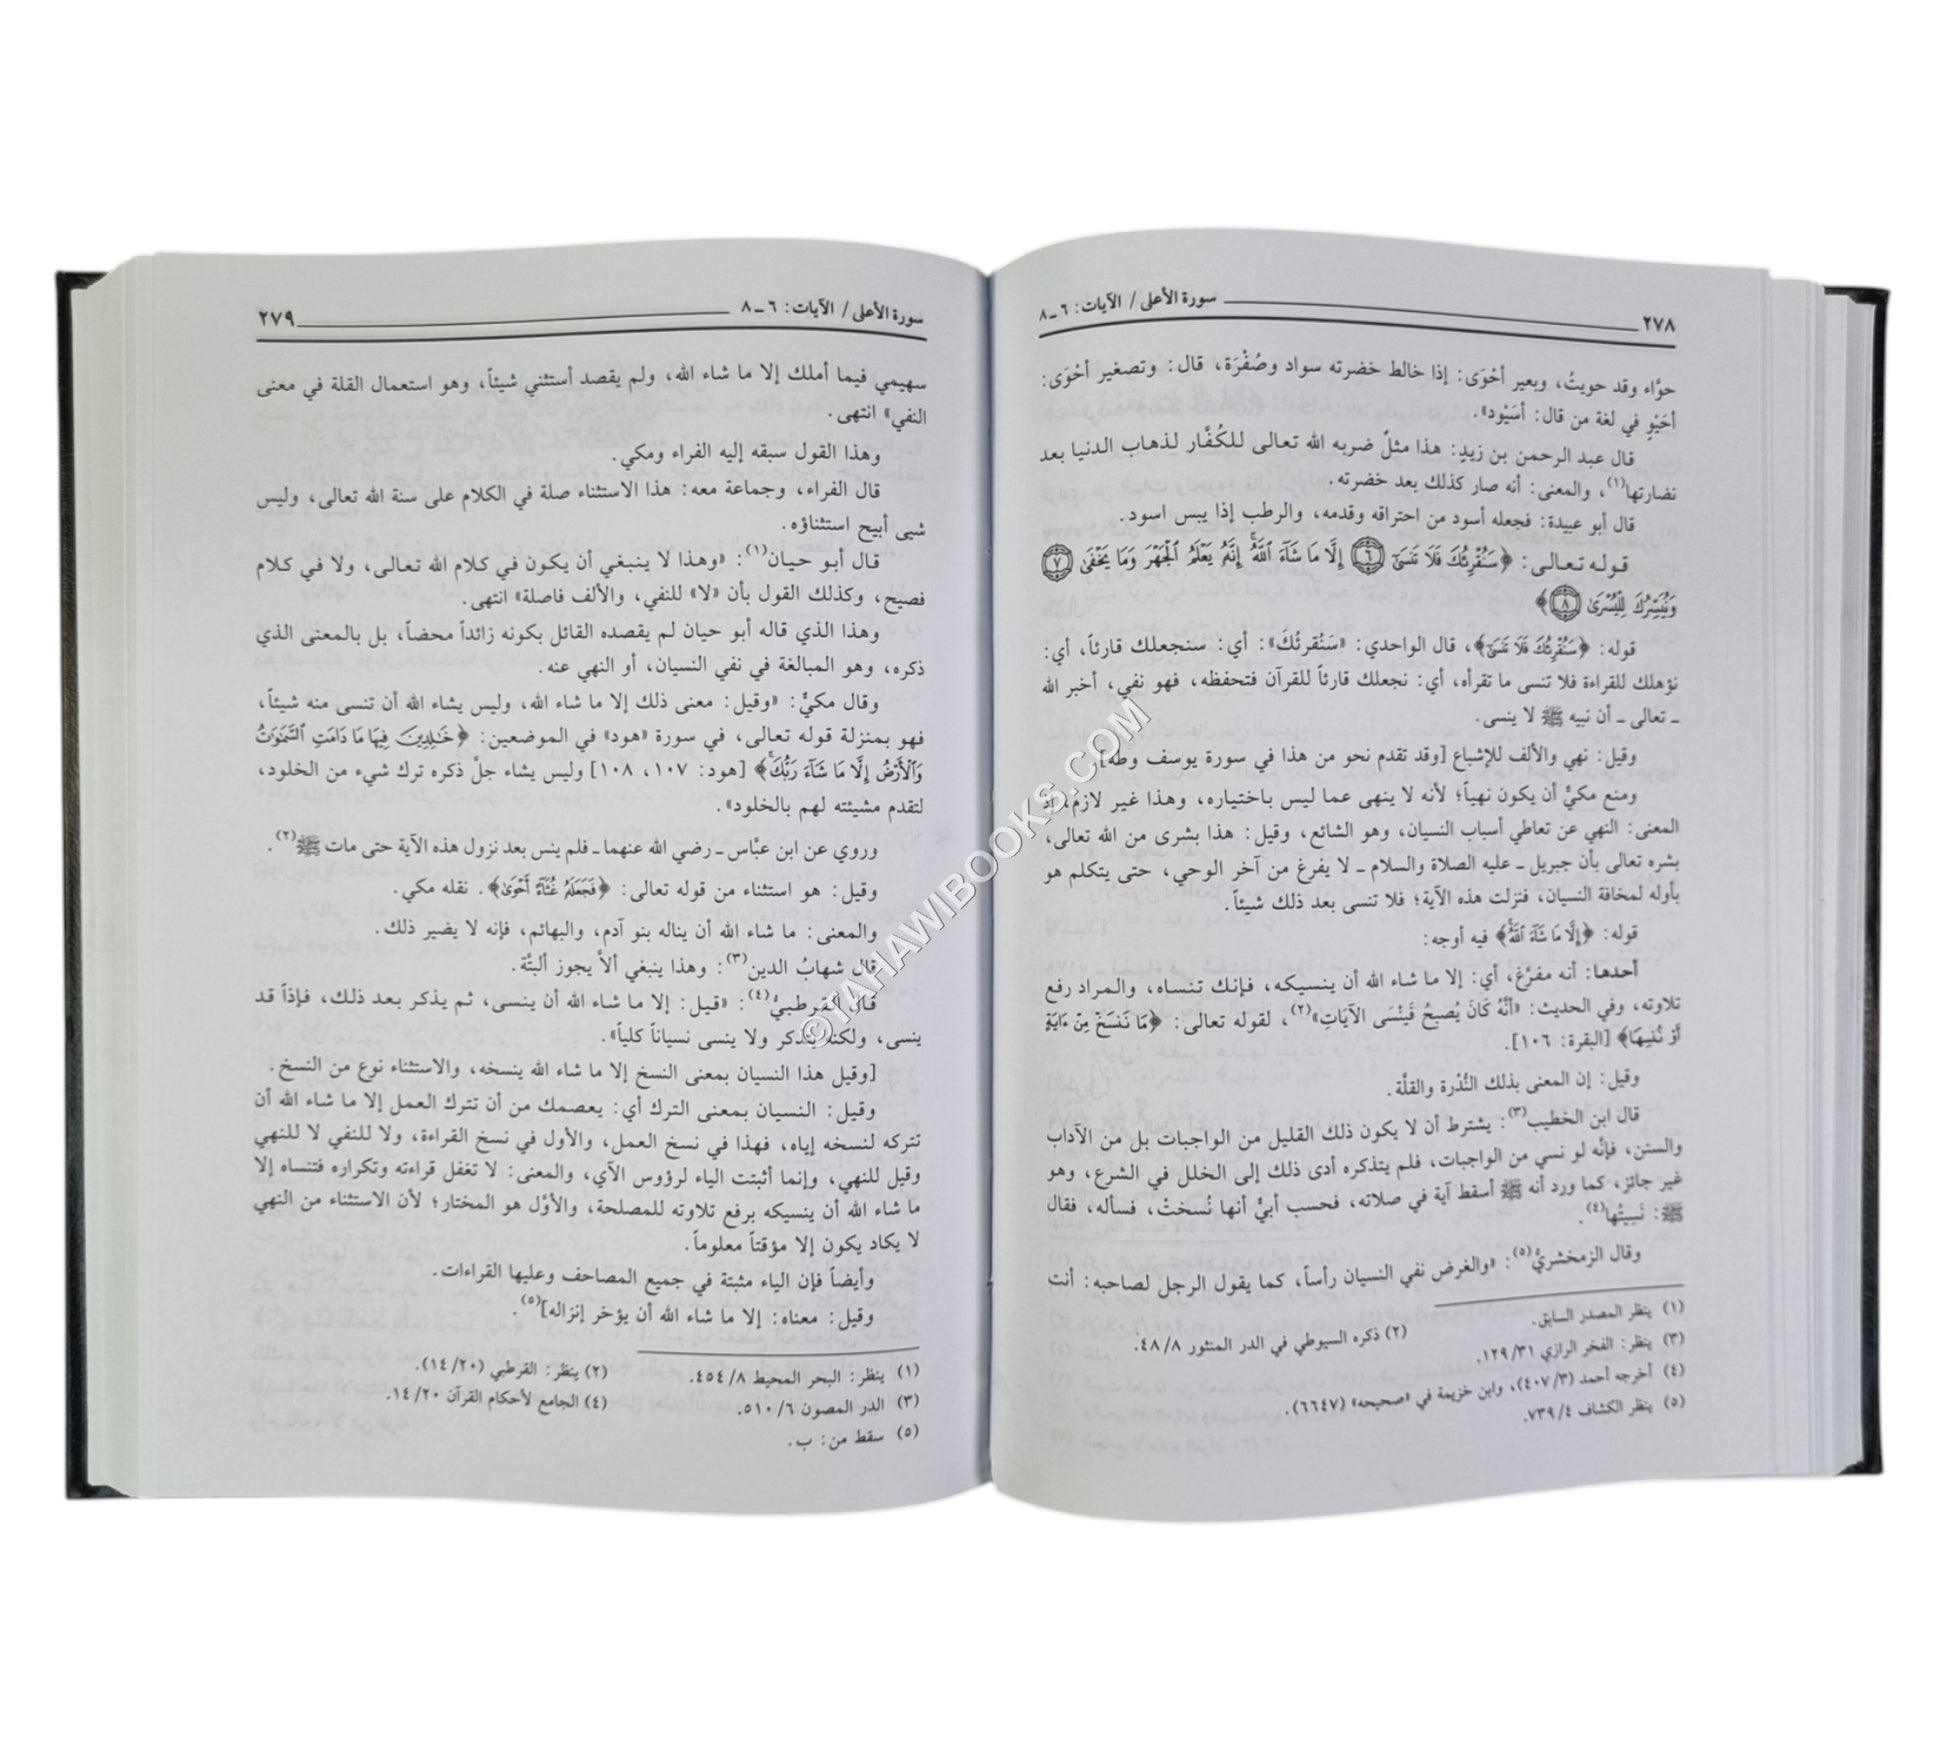 ٢٧٨ سورة الأعلى / الآيات: ٦ ـ ٨
حوَّاء وقد حويتُ، وبعير أحْوَى: إذا خالط خضرته سواد وصُفْرَة، قال: وتصغير أحْوَى:
أحَيْوٍ في لغة من قال: أسَيْود».
قال عبد الرحمن بن زيدٍ: هذا مثلٌ ضربه الله تعالى للكُفَّار لذهاب الدنيا بعد
نضارتها(١)، والمعنى: أنه صار كذلك بعد خضرته.
قال أبو عبيدة: فجعله أسود من احتراقه وقدمه، والرطب إذا يبس اسود.
قوله تعالى: ﴿سَنُقْرِئُكَ فَلَا تَنسَىٰٓ ٦ إِلَّا مَا شَآءَ ٱللَّهُۚ إِنَّهُۥ يَعْلَمُ ٱلْجَهْرَ وَمَا يَخْفَىٰ ٧
وَنُيَسِّرُكَ لِلْيُسْرَىٰ ٨﴾
قوله: ﴿سَنُقْرِئُكَ فَلَا تَنسَىٰٓ﴾، قال الواحدي: «سَنُقرئُكَ»: أي: سنجعلك قارئاً، أي:
نؤهلك للقراءة فلا تنسى ما تقرأه، أي: نجعلك قارئاً للقرآن فتحفظه، فهو نفي، أخبر الله
ـ تعالى ـ أن نبيه ﷺ لا ينسى.
وقيل: نهي والألف للإشباع [وقد تقدم نحو من هذا في سورة يوسف وطه].
ومنع مكيّ أن يكون نهياً؛ لأنه لا ينهى عما ليس باختياره، وهذا غير لازم، إذ
المعنى: النهي عن تعاطي أسباب النسيان، وهو الشائع، وقيل: هذا بشرى من الله تعالى،
بشره تعالى بأن جبريل ـ عليه الصلاة والسلام ـ لا يفرغ من آخر الوحي، حتى يتكلم هو
بأوله لمخافة النسيان، فنزلت هذه الآية؛ فلا تنسى بعد ذلك شيئاً.
قوله: ﴿إِلَّا مَا شَآءَ ٱللَّهُۚ﴾ فيه أوجه:
أحدها: أنه مفرّغ، أي: إلا ما شاء الله أن ينسيكه، فإنك تنساه، والمراد رفع
تلاوته، وفي الحديث: «أنَّهُ كَانَ يُصبحُ فَيَنْسَى الآيَاتِ»(٢)، لقوله تعالى: ﴿مَا نَنسَخْ مِنْ ءَايَةٍ
أَوْ نُنسِهَا﴾ [البقرة: ١٠٦].
وقيل: إن المعنى بذلك النُّدْرة والقلَّة.
قال ابن الخطيب(٣): يشترط أن لا يكون ذلك القليل من الواجبات بل من الآداب
والسنن، فإنَّه لو نسي من الواجبات، فلم يتذكره أدى ذلك إلى الخلل في الشرع، وهو
غير جائز، كما ورد أنه ﷺ أسقط آية في صلاته، فحسب أبيٌّ أنها نُسختْ، فسأله، فقال
ﷺ: نَسِيتُها(٤).
وقال الزمخشريُّ(٥): «والغرض نفي النسيان رأساً، كما يقول الرجل لصاحبه: أنت
(١) ينظر المصدر السابق.
(٢) ذكره السيوطي في الدر المنثور ٤٨/٨.
(٣) ينظر: الفخر الرازي ١٢٩/٣١.
(٤) أخرجه أحمد (٤٠٧/٣)، وابن خزيمة في «صحيحه» (٦٦٤٧).
(٥) ينظر الكشاف ٧٣٩/٤.
سورة الأعلى / الآيات: ٦ ـ ٨ ٢٧٩
سهيمي فيما أملك إلا ما شاء الله، ولم يقصد أستثني شيئاً، وهو استعمال القلة في معنى
النفي» انتهى.
وهذا القول سبقه إليه الفراء ومكي.
قال الفراء، وجماعة معه: هذا الاستثناء صلة في الكلام على سنة الله تعالى، وليس
شيى أبيح استثناؤه.
قال أبو حيان(١): «وهذا لا ينبغي أن يكون في كلام الله تعالى، ولا في كلام
فصيح، وكذلك القول بأن «لا» للنفي، والألف فاصلة» انتهى.
وهذا الذي قاله أبو حيان لم يقصده القائل بكونه زائداً محضاً، بل بالمعنى الذي
ذكره، وهو المبالغة في نفي النسيان، أو النهي عنه.
وقال مكيٌّ: «وقيل: معنى ذلك إلا ما شاء الله، وليس يشاء الله أن تنسى منه شيئاً،
فهو بمنزلة قوله تعالى، في سورة «هود» في الموضعين: ﴿خَٰلِدِينَ فِيهَا مَا دَامَتِ ٱلسَّمَٰوَٰتُ
وَٱلْأَرْضُ إِلَّا مَا شَآءَ رَبُّكَۚ﴾ [هود: ١٠٧، ١٠٨] وليس يشاء جلّ ذكره ترك شيء من الخلود،
لتقدم مشيئته لهم بالخلود».
وروي عن ابن عبَّاس ـ رضي الله عنهما ـ فلم ينس بعد نزول هذه الآية حتى مات ﷺ(٢).
وقيل: هو استثناء من قوله تعالى: ﴿فَجَعَلَهُۥ غُثَآءً أَحْوَىٰ﴾. نقله مكي.
والمعنى: ما شاء الله أن يناله بنو آدم، والبهائم، فإنه لا يضير ذلك.
قال شهابُ الدين(٣): وهذا ينبغي ألاَّ يجوز ألبتَّة.
قال القرطبيُّ(٤): «قيل: إلا ما شاء الله أن ينسى، ثم يذكر بعد ذلك، فإذاً قد
ينسى، ولكنه يتذكر ولا ينسى نسياناً كلياً».
[وقيل هذا النسيان بمعنى النسخ إلا ما شاء الله ينسخه، والاستثناء نوع من النسخ.
وقيل: النسيان بمعنى الترك أي: يعصمك من أن تترك العمل إلا ما شاء الله أن
تتركه لنسخه إياه، فهذا في نسخ العمل، والأول في نسخ القراءة، ولا للنفي لا للنهي
وقيل للنهي، وإنما أثبتت الياء لرؤوس الآي، والمعنى: لا تغفل قراءته وتكراره فتنساه إلا
ما شاء الله أن ينسيكه برفع تلاوته للمصلحة، والأوّل هو المختار؛ لأن الاستثناء من النهي
لا يكاد يكون إلا مؤقتاً معلوماً.
وأيضاً فإن الياء مثبتة في جميع المصاحف وعليها القراءات.
وقيل: معناه: إلا ما شاء الله أن يؤخر إنزاله](٥).
(١) ينظر: البحر المحيط ٤٥٤/٨.
(٢) ينظر: القرطبي (١٤/٢٠).
(٣) الدر المصون ٥١٠/٦.
(٤) الجامع لأحكام القرآن ١٤/٢٠.
(٥) سقط من: ب.
©TAHAWIBOOKS.COM